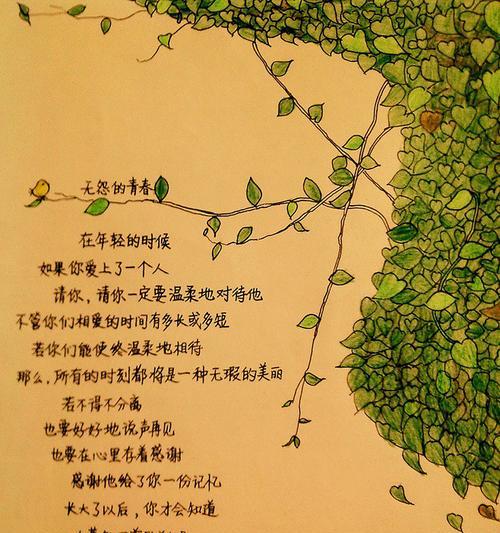 无怨的青春
在年轻的时候
如果你爱上了一个人
请你，请你一定要温柔地对待他
不管你们相爱的时间有多长或多短
若你们能使终温柔地相待
那么，所有的时刻都将是一种无瑕的美丽
若不得不分离
也要好好地说声再见
也要在心里存着感谢
感谢他给了你一份记忆
长大了以后，你才会知道